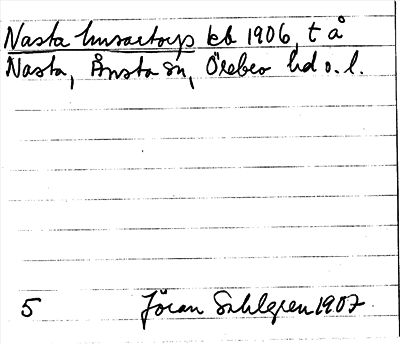 Nasta husartorp kb 1906, t å
Nasta, Ånsta sn, Örebro hd o. l.
5 Jöran Sahlgren 1907